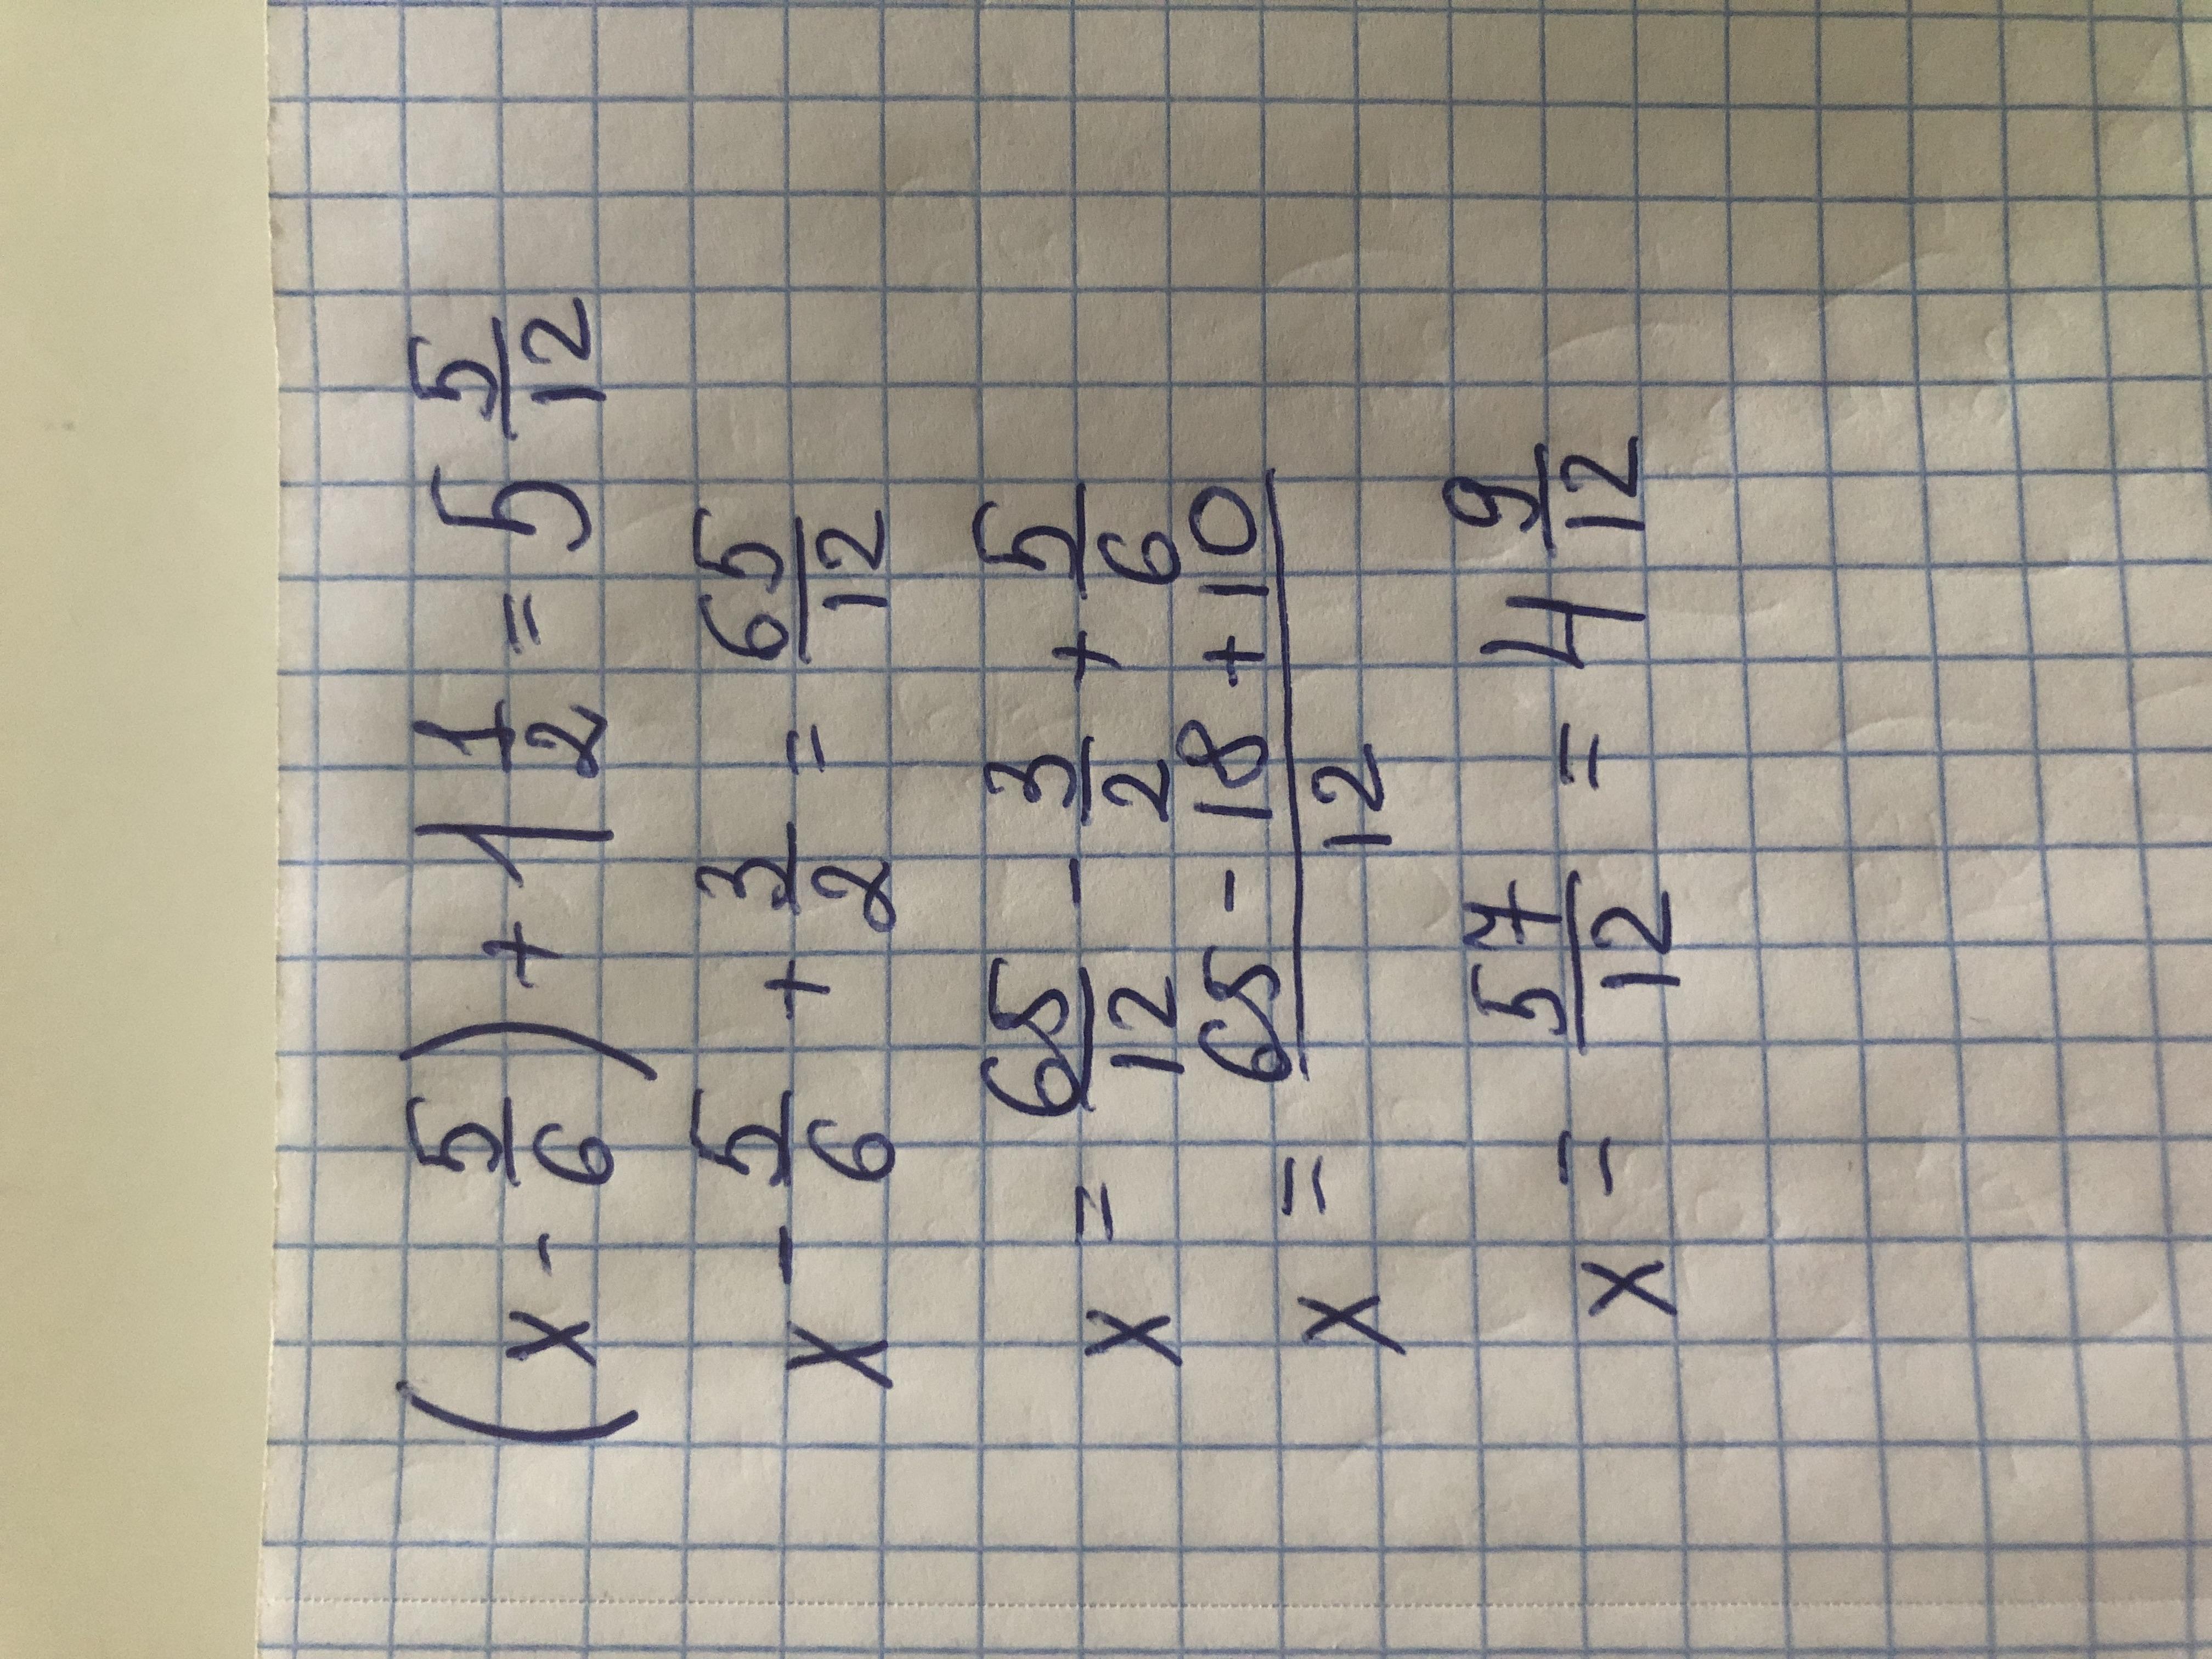 (x - 5/6) + 1 1/2 = 5 5/12
x - 5/6 + 3/2 = 65/12
x = 65/12 - 3/2 + 5/6
x = (65 - 18 + 10)/12
x = 57/12 = 4 9/12